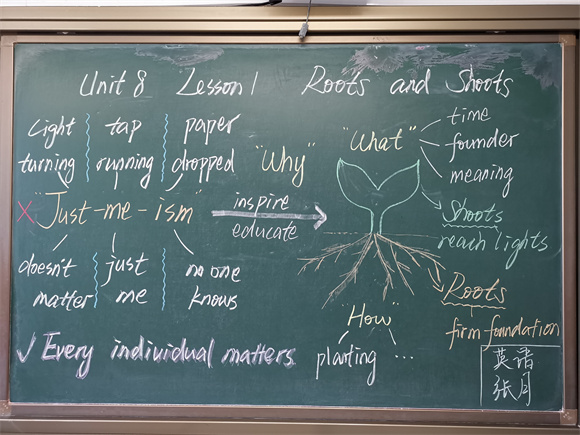 Unit 8 Lesson 1 Roots and Shoots
Light tap paper
turning running dropped
"Why"
"What"
time
founder
meaning
× "Just-me-ism"
inspire
educate
Shoots
reach lights
doesn't just no one
matter me knows
Roots
firm foundation
"How"
planting ...
✓ Every individual matters
英语
张月